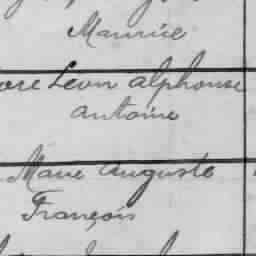 Maurice
Léon Alphonse
Antoine
Marie Auguste
François